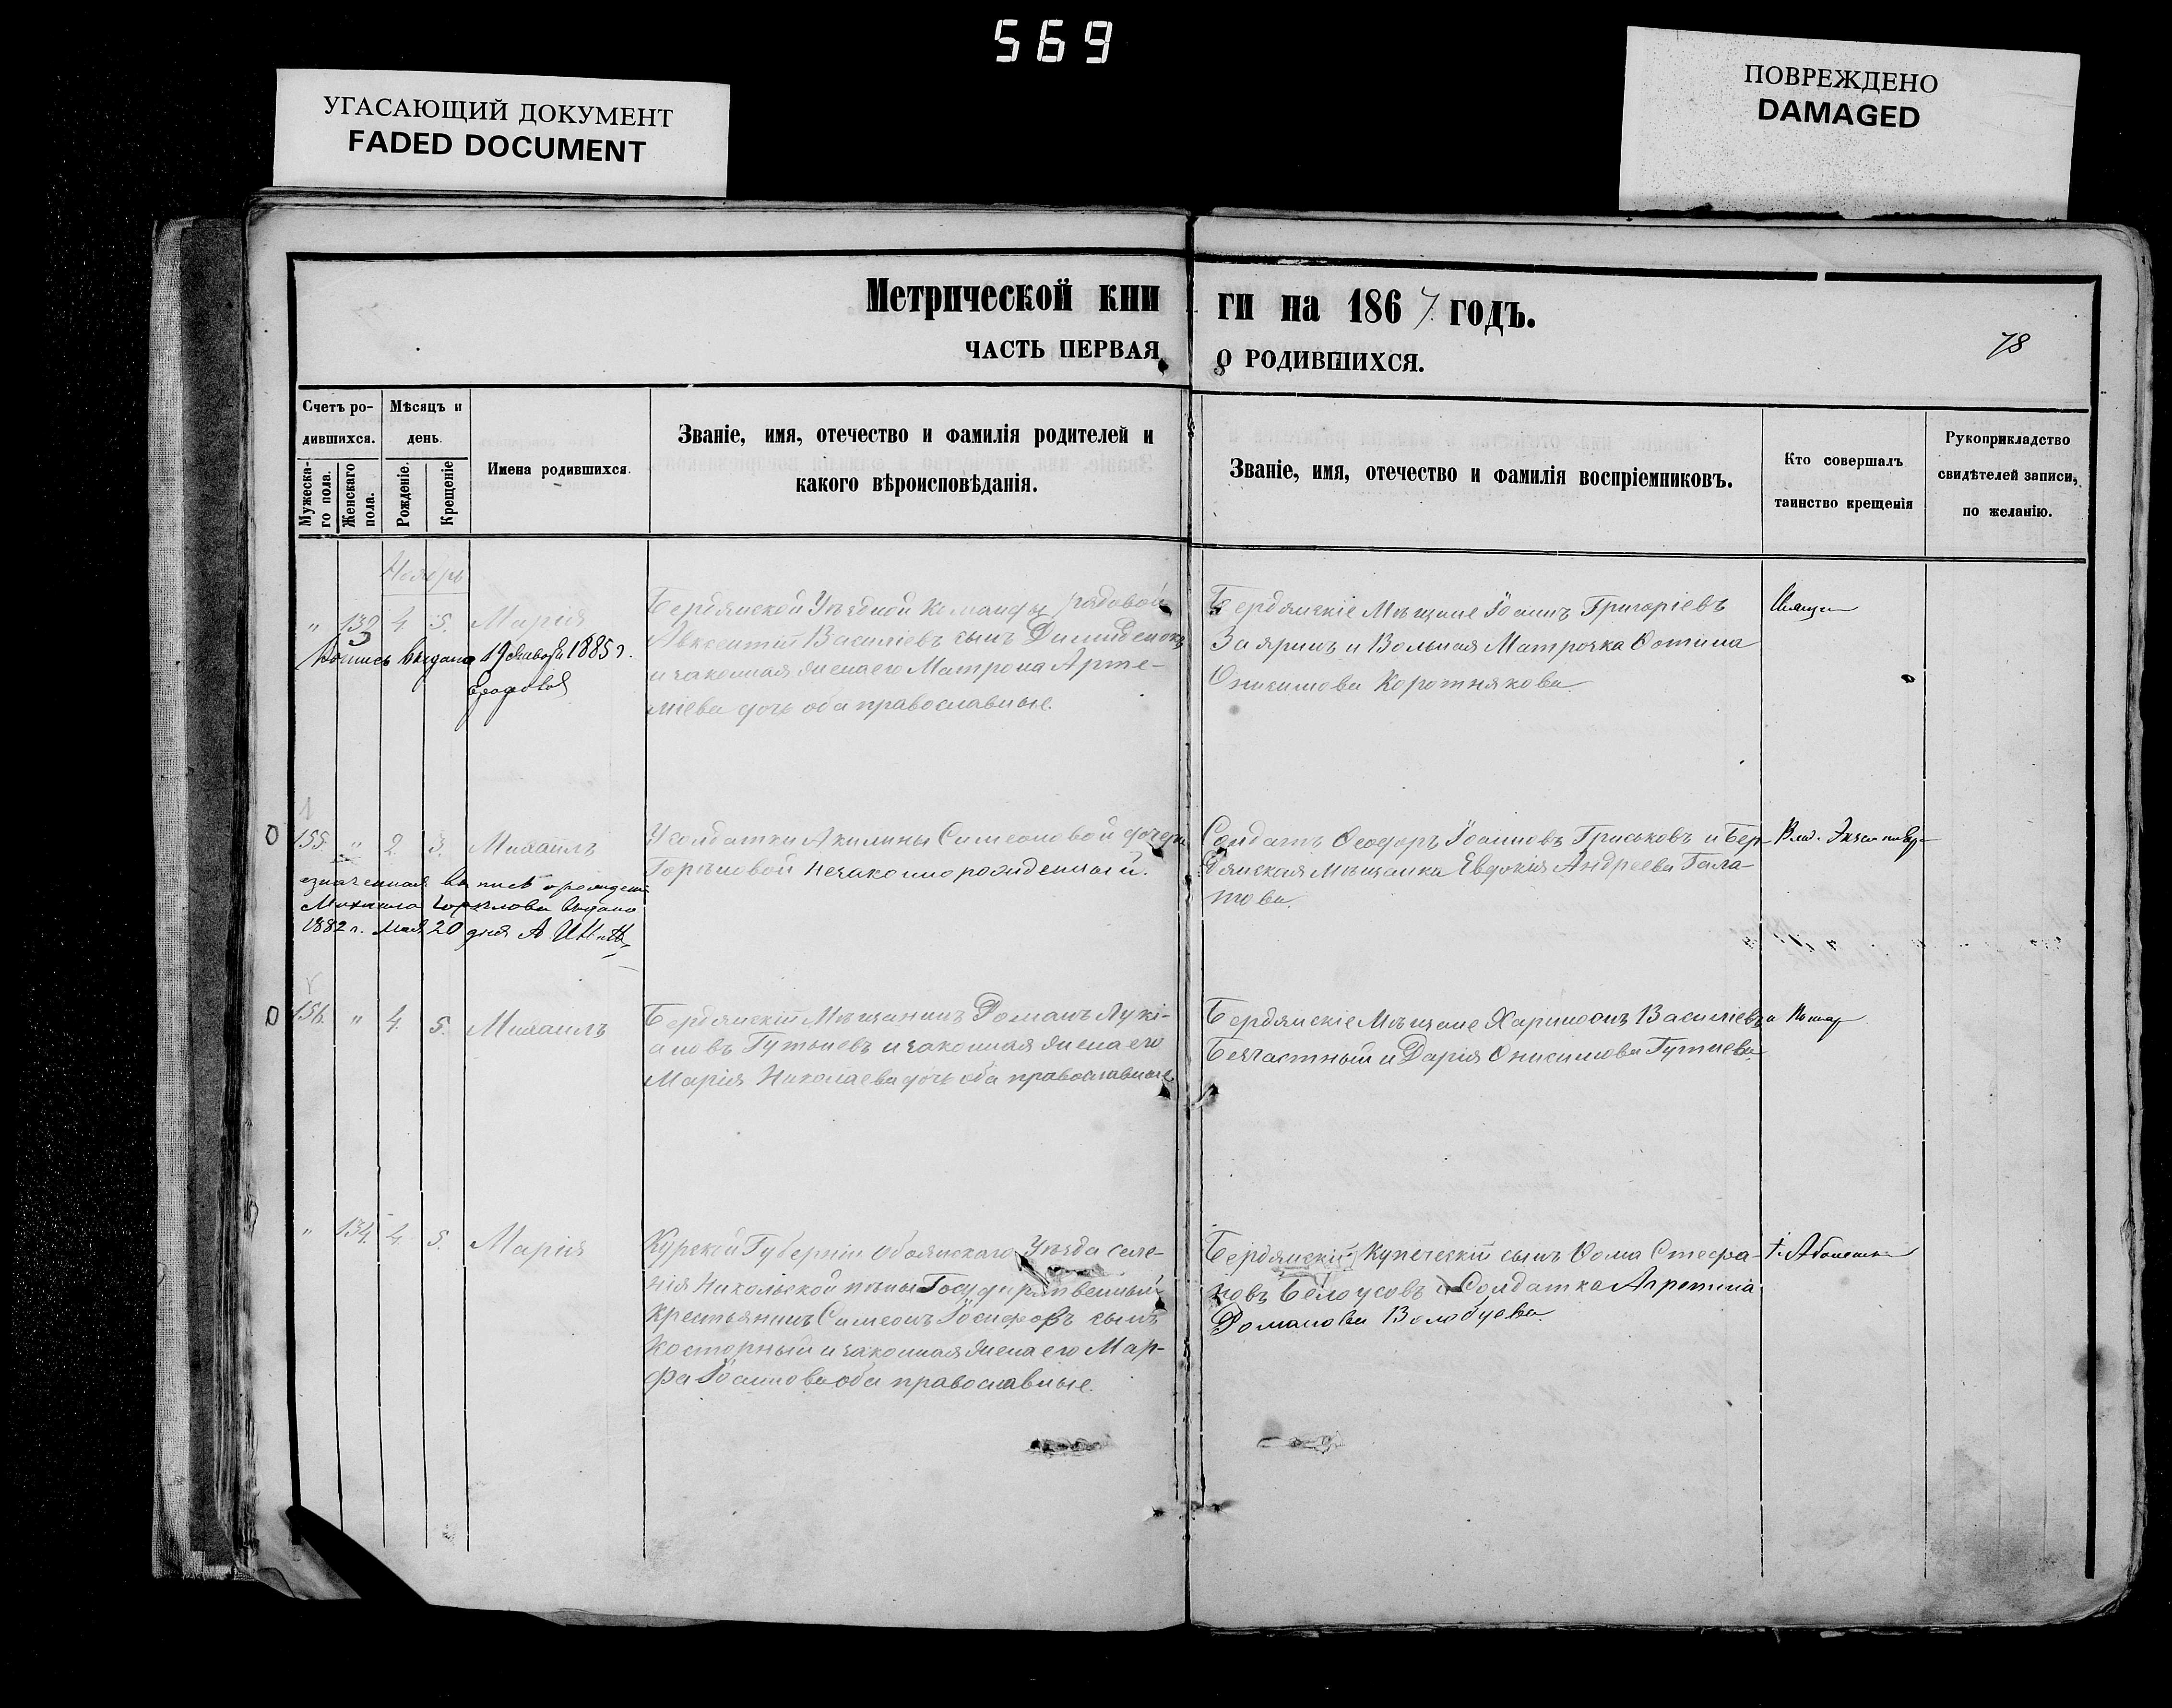 569
УГАСАЮЩИЙ ДОКУМЕНТ
FADED DOCUMENT
ПОВРЕЖДЕНО
DAMAGED
Метрической книги на 1867 годъ.
ЧАСТЬ ПЕРВАЯ О РОДИВШИХСЯ.
78
Счетъ родившихся.
Мужескаго пола.
Женскаго пола.
Мѣсяцъ и день.
Рожденіе.
Крещеніе
Имена родившихся.
Званіе, имя, отечество и фамилія родителей и
какого вѣроисповѣданія.
Званіе, имя, отечество и фамилія воспріемниковъ.
Кто совершалъ
таинство крещенія
Рукоприкладство
свидѣтелей записи,
по желанію.
Ноябрь
" 133 4. 5. Марія
выдана 1885 г.
Бердянской Уѣздной Команды рядовой
Авксентій Васильевъ сынъ
и законная жена его Матрона Арте-
міева дочь оба православные.
Бердянскіе Мѣщане Іоаннъ Григоріевъ
Заяринъ и Вольная Матрочка Фотина
Онисимова Коротнякова
155. " 2. 3. Михаилъ
Михаила Горѣлова выдано
1882 г. Мая 20 дня
У солдатки Акилины Симеоновой дочери
Горѣловой незаконнорожденный.
Солдатъ Ѳеодоръ Іоанновъ Гриськовъ и Бер-
дянская Мѣщанка Евдокія Андреева Гала-
това.
156. " 4. 5. Михаилъ
Бердянскій Мѣщанинъ Романъ Лукі-
ановъ Гутневъ и законная жена его
Марія Николаева дочь оба православные
Бердянскіе Мѣщане Харитонъ Василіевъ
Безчастный и Дарія Онисимова Гутнева
" 134. 4. 5. Марія
Курской Губерніи Обоянскаго Уѣзда селе-
нія Никольской Государственный
крестьянинъ Симеонъ Іосифовъ сынъ
Косторный и законная жена его Мар-
фа Іоаннова оба православные.
Бердянскій Купеческій сынъ Ѳома Стефа-
новъ Бѣлоусовъ и Солдатка Агрепина
Романова Волобуева.